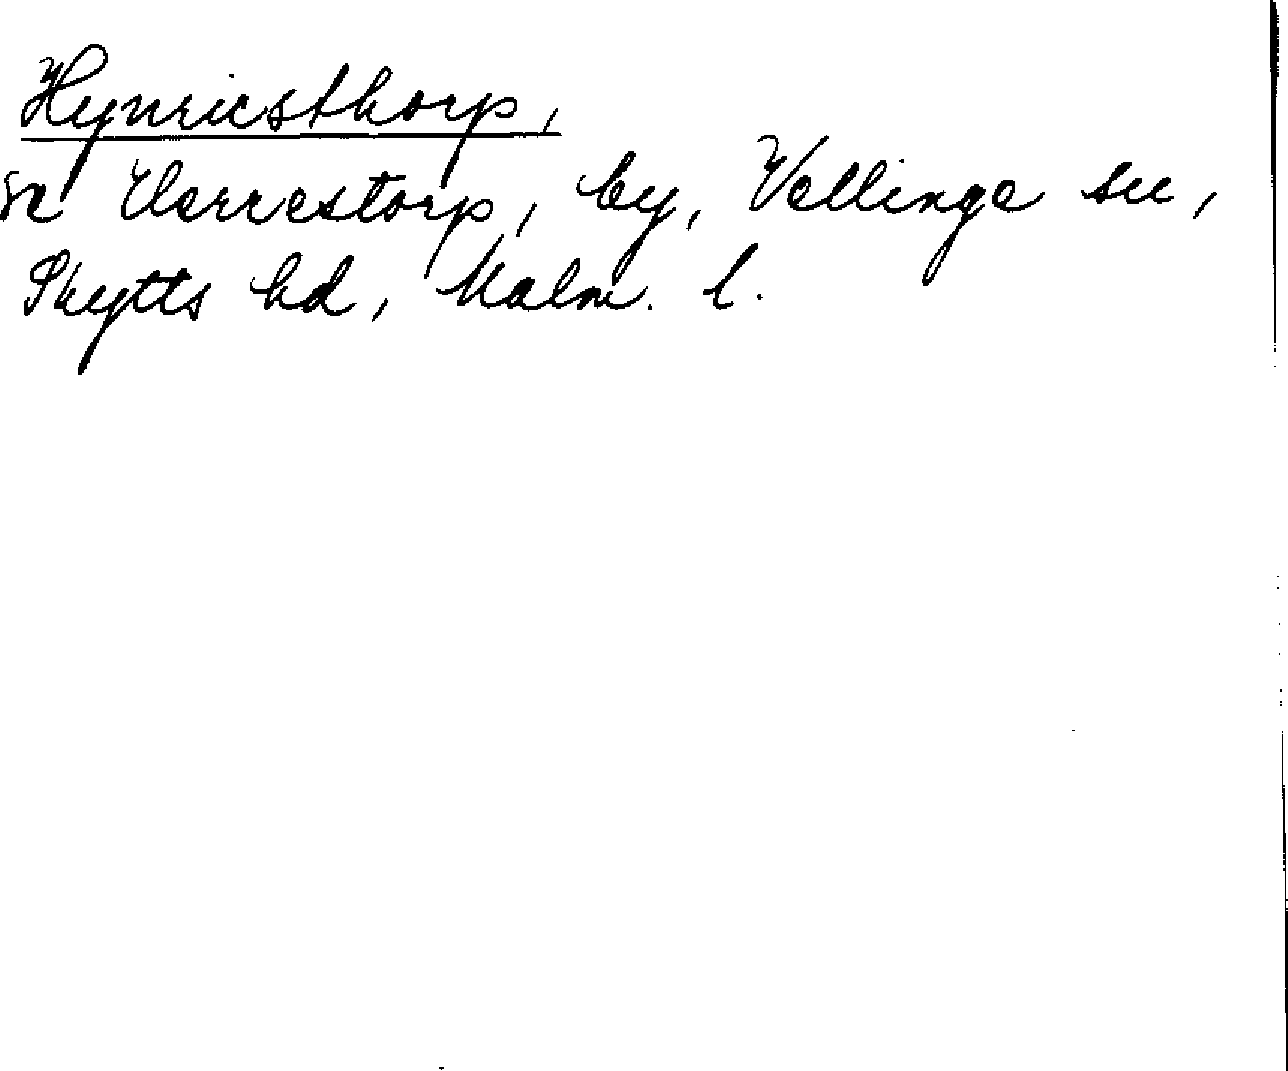 Hynricsthorp,
se Herrestorp, by, Vellinge sn,
Skytts hd, Malm. l.